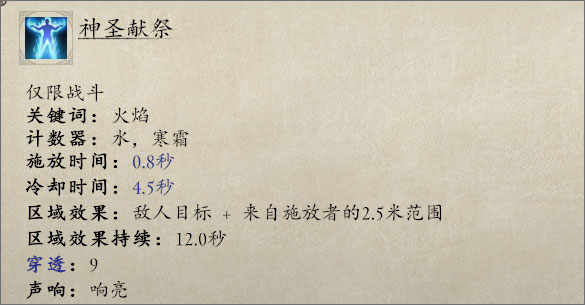 神圣献祭
仅限战斗
关键词：火焰
计数器：水，寒霜
施放时间：0.8秒
冷却时间：4.5秒
区域效果：敌人目标 + 来自施放者的2.5米范围
区域效果持续：12.0秒
穿透：9
声响：响亮